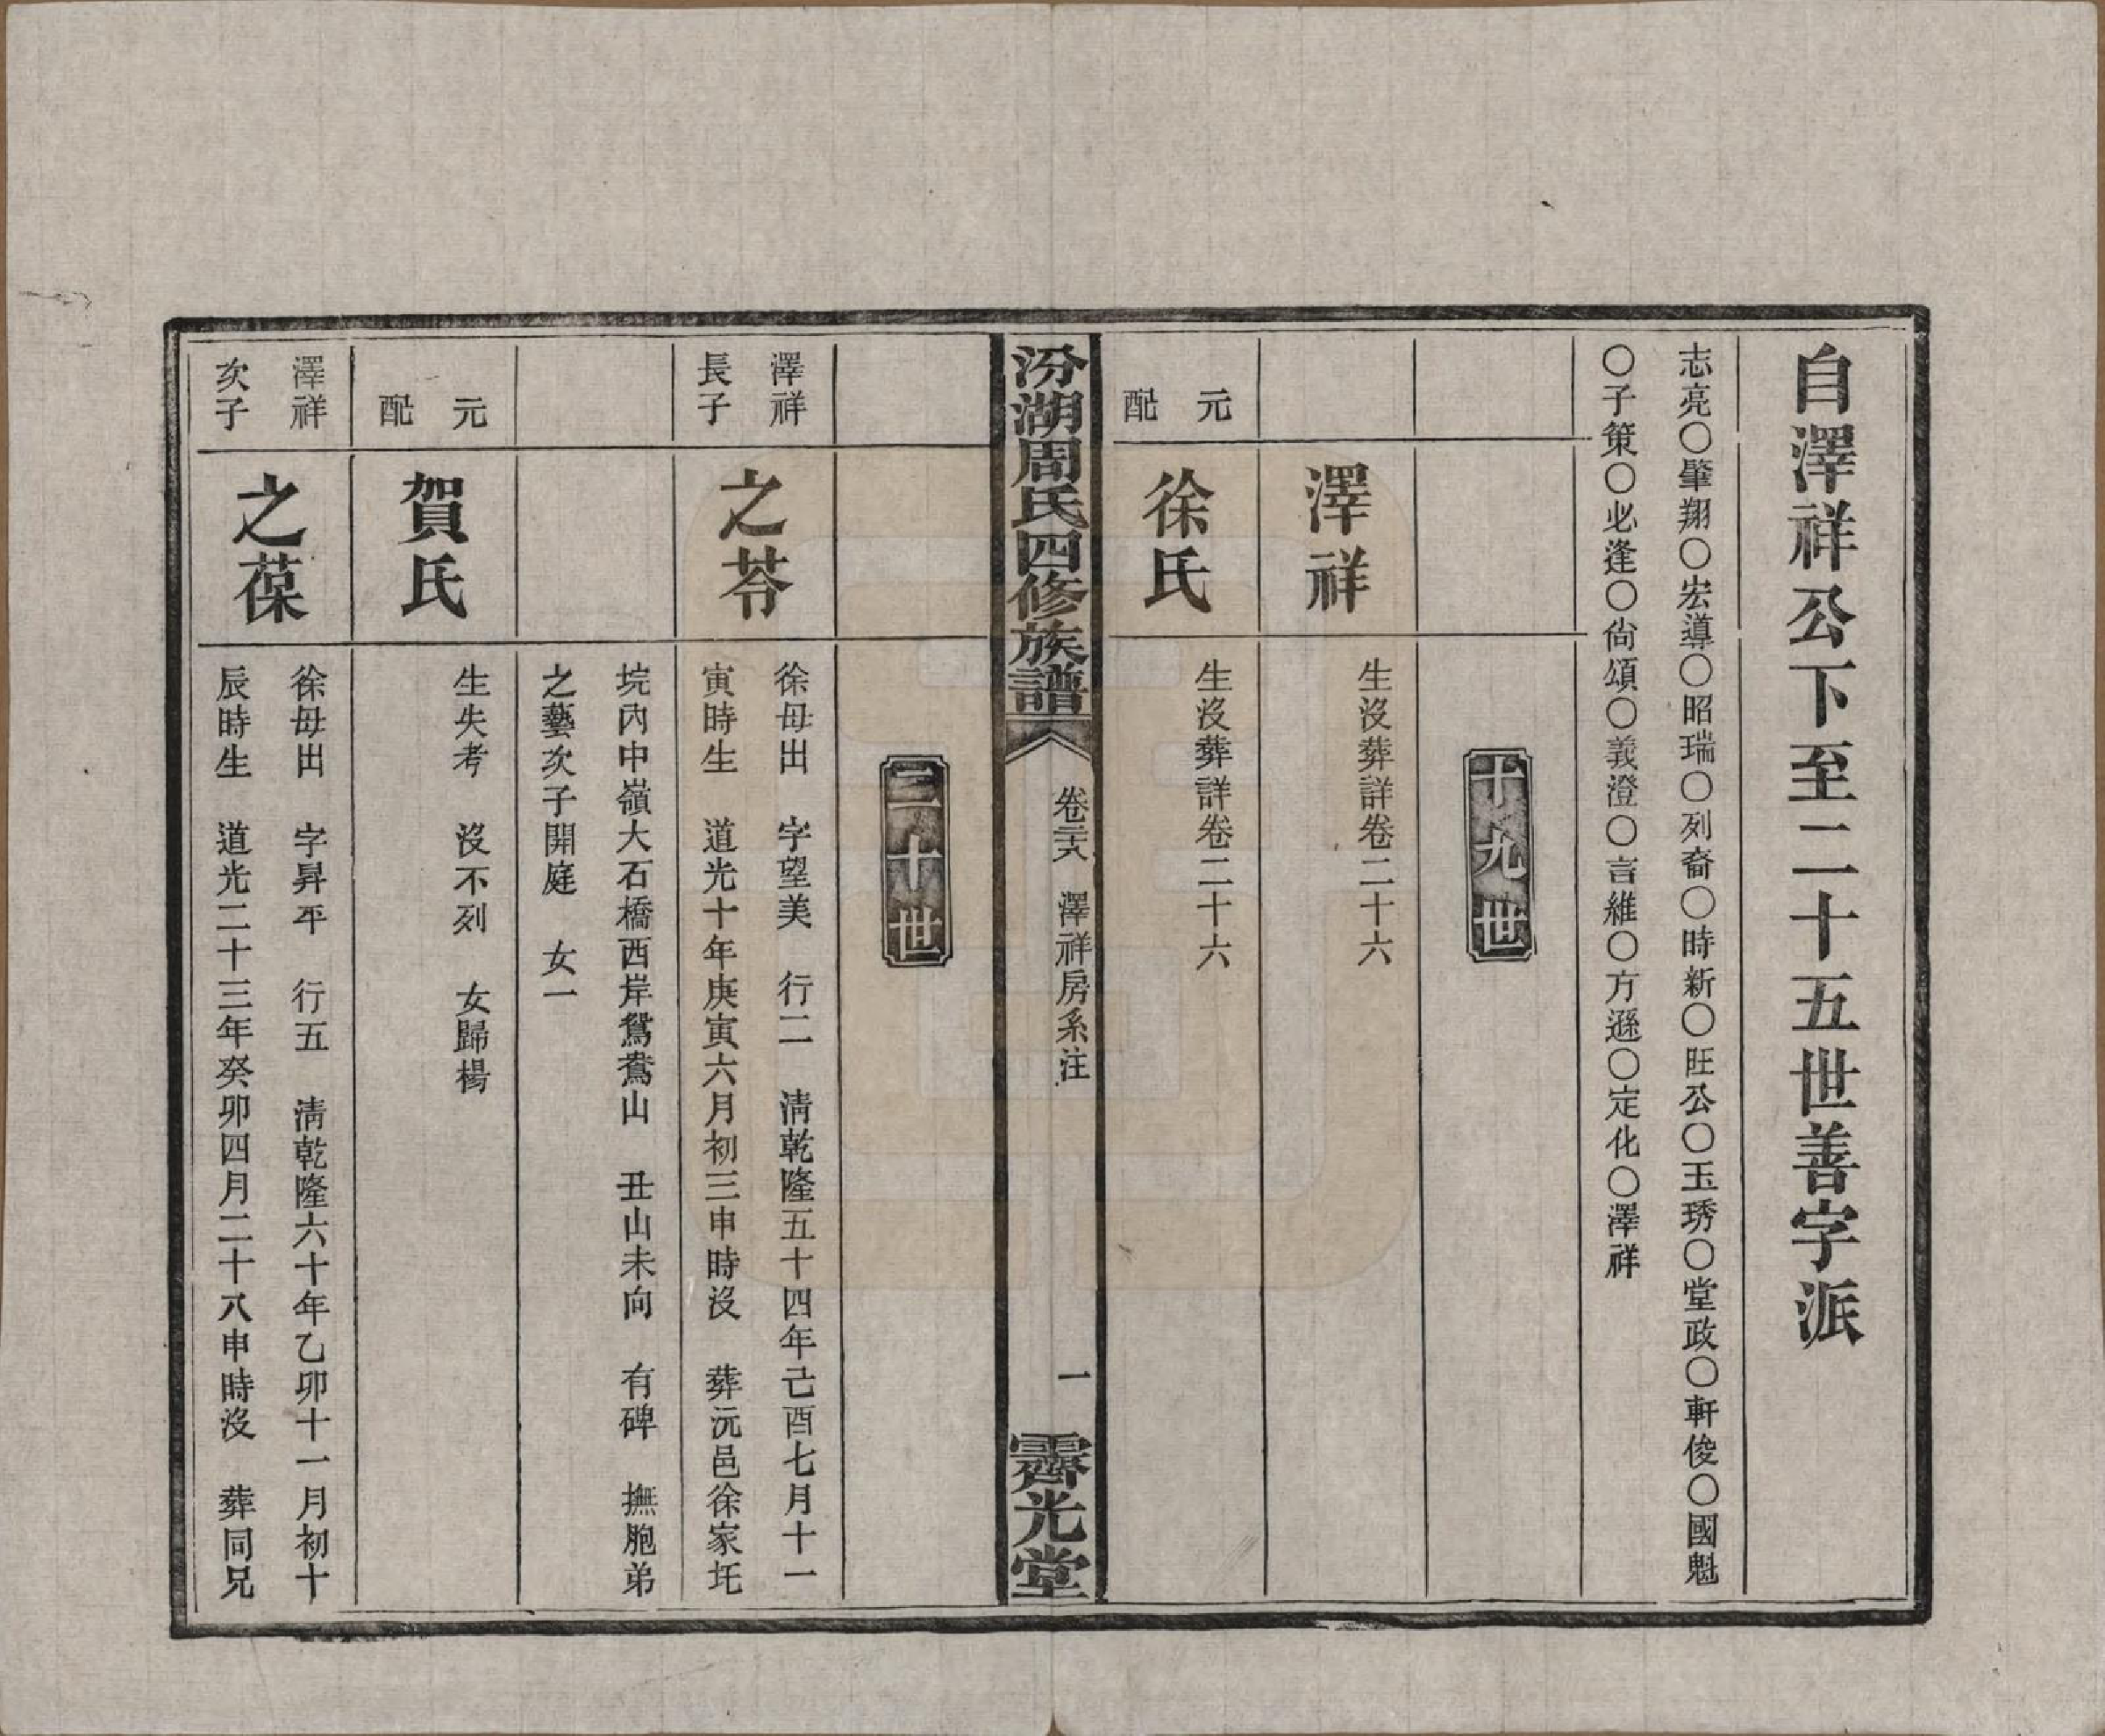 自澤祥公下至二十五世善字派
志亮〇肇翔〇宏導〇昭瑞〇列裔〇時新〇旺公〇玉琇〇堂政〇軒俊〇國魁
〇子策〇必逢〇尙頌〇義澄〇言維〇方遜〇定化〇澤祥
十九世
澤祥
生沒葬詳卷二十六
元配
徐氏
生沒葬詳卷二十六
汾湖周氏四修族譜
卷二十八 澤祥房系注
一
霽光堂
二十世
澤祥
長子
之芩
徐母出 字望美 行二 清乾隆五十四年己酉七月十一
寅時生 道光十年庚寅六月初三申時沒 葬沅邑徐家圫
垸內中嶺大石橋西岸鴛鴦山 丑山未向 有碑 撫胞弟
之藝次子開庭 女一
元配
賀氏
生失考 沒不列 女歸楊
澤祥
次子
之葆
徐母出 字昇平 行五 清乾隆六十年乙卯十一月初十
辰時生 道光二十三年癸卯四月二十八申時沒 葬同兄